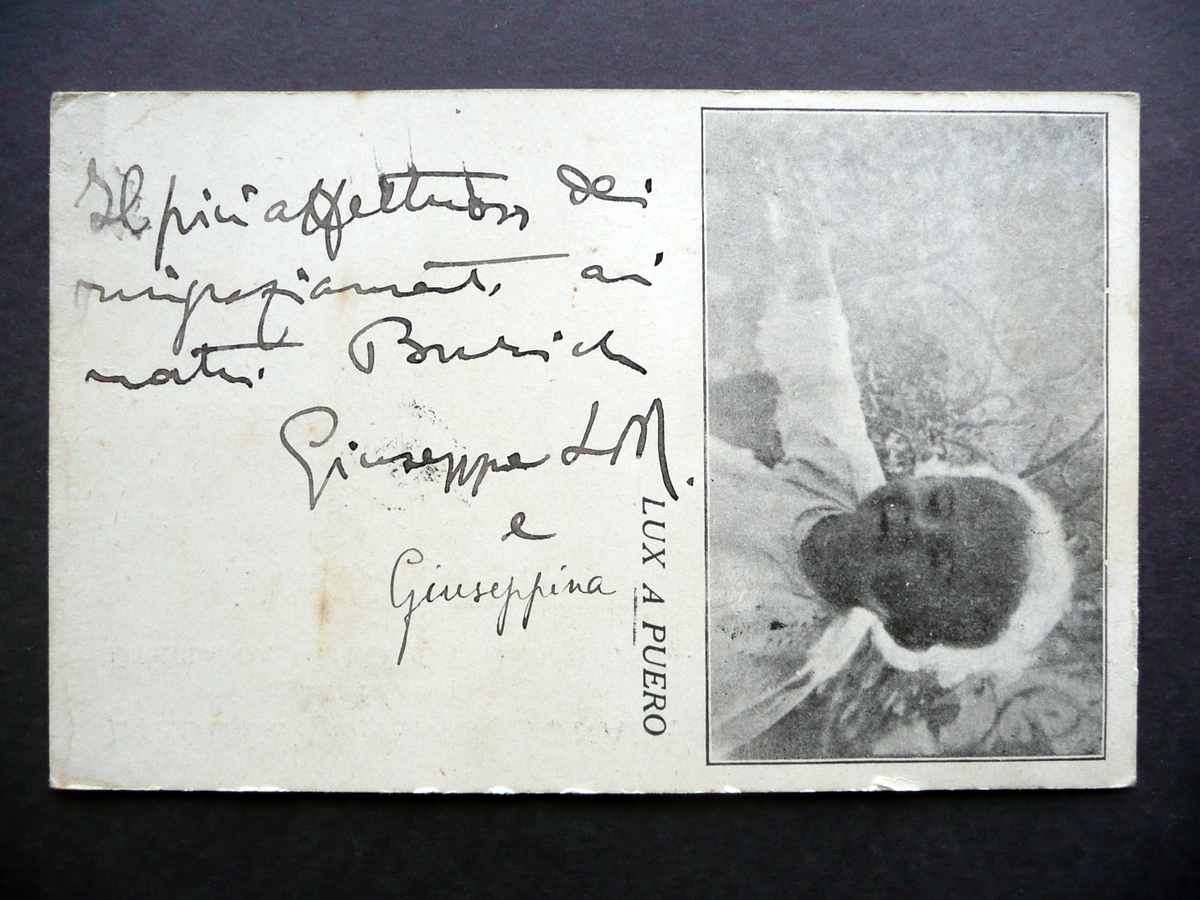 Il più affettuoso dei
ringraziamenti ai
nostri Burich
Giuseppe L M.
e
Giuseppina
LUX A PUERO